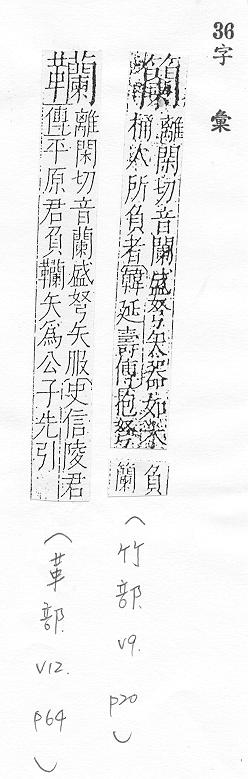 36字 彙
籣離閑切音闌盛弩矢器如
桶人所負者韓延壽傳抱弩
負
籣
(竹部. v9. p20)
韊離閑切音蘭盛弩矢服史信陵君
傳平原君負韊矢爲公子先引
(革部. v12. p64)